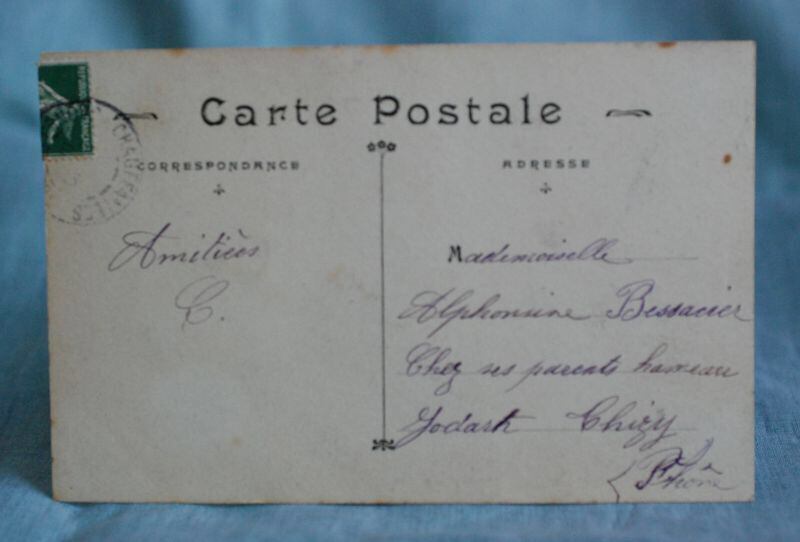 Carte Postale
CORRESPONDANCE
ADRESSE
Amitiées
C.
Mademoiselle
Alphonsine Bessacier
Chez ses parents hameau
Godart Chizy
Rhône